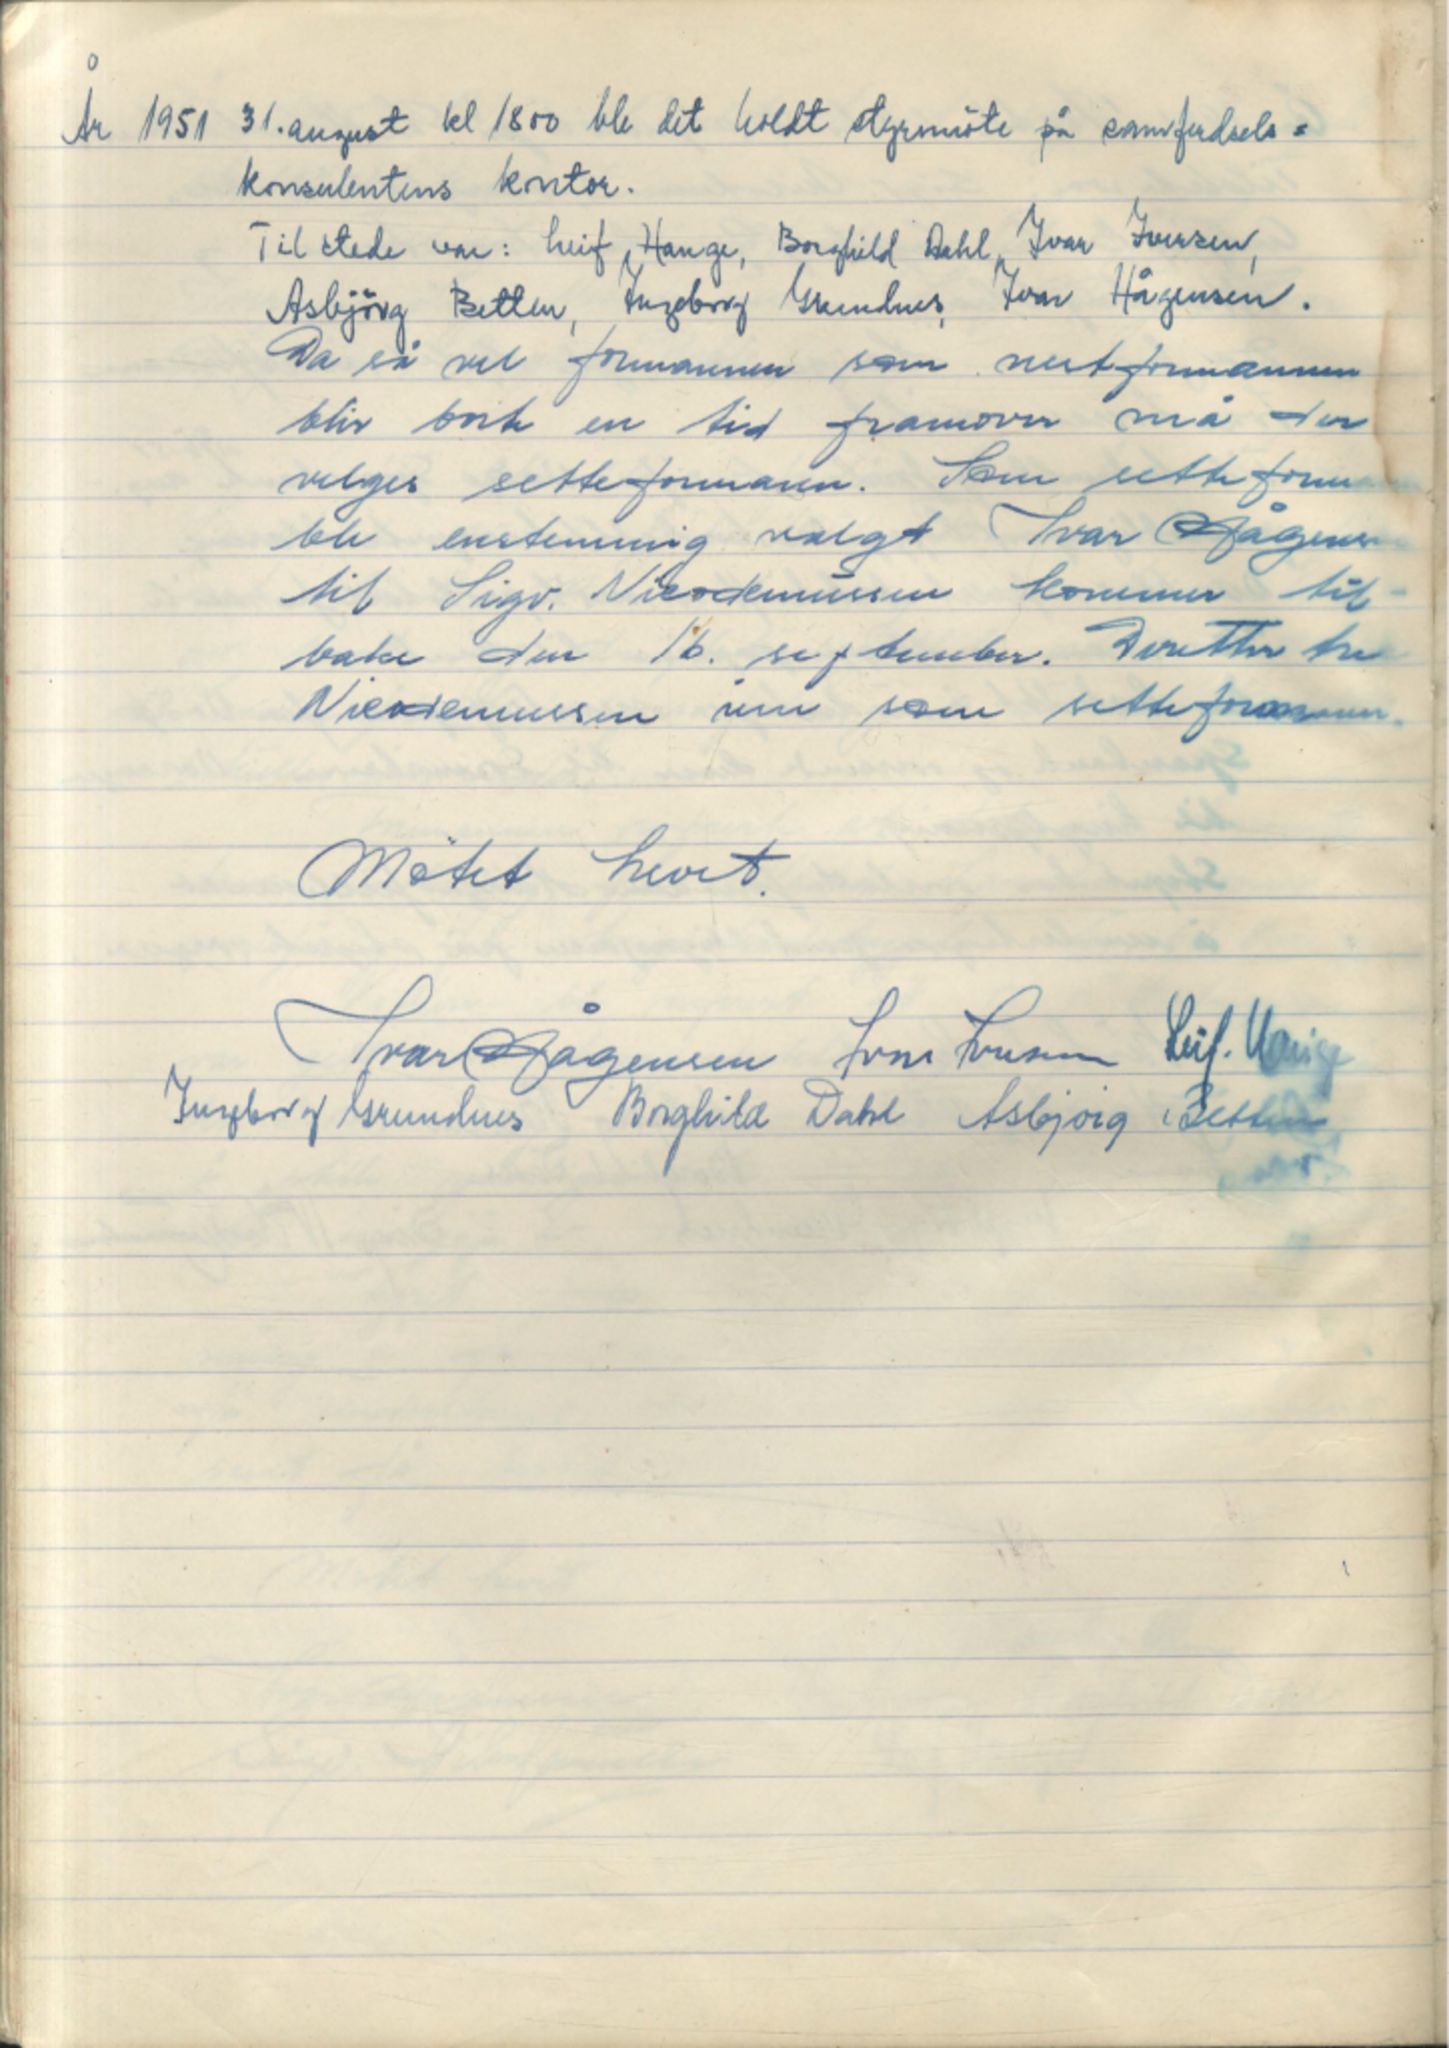 År 1951 31. august kl 1800 ble det holdt styrmöte på samferdsels=
konsulentens kontor.
Til stede var: Leif Hauge, Borghild Dahl, Ivar Iversen,
Asbjörg Betten, Ingeborg Grundnes, Ivar Hågensen.
Da så vel formannen som nestformannen
blir bort en tid framover må der
velges setteformann. Som setteform
ble enstemmig valgt Ivar Hågensen
til Sigv. Nicodemussen kommer til-
bake den 16. september. Deretter tre
Nicodemussen inn som setteformann.
Møtet hevet.
Ivar Hågensen Ivar Iversen Leif. Hauge
Ingeborg Grundnes Borghild Dahl Asbjörg Betten